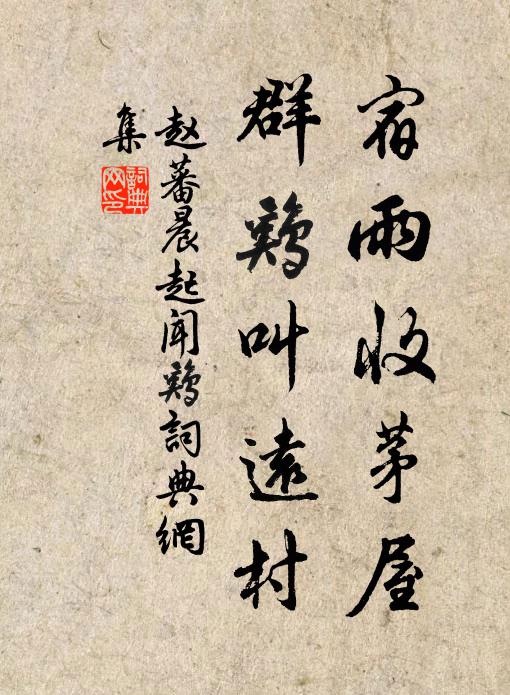 宿雨收茅屋
群鷄叫遠村
赵蕃晨起闻鷄詞典網
集
詞典
网印